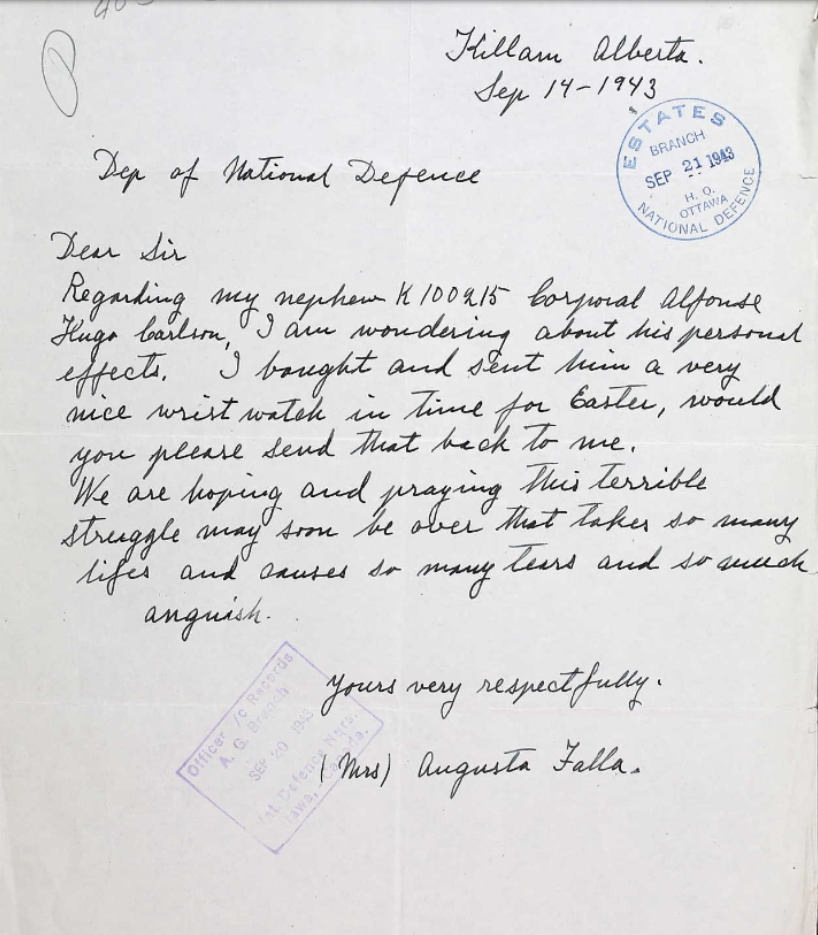 Killam Alberta.
Sep 14-1943
ESTATES
BRANCH
SEP 21 1943
H. Q.
OTTAWA
NATIONAL DEFENCE
Dep of National Defence
Dear Sir
Regarding my nephew K100215 Corporal Alfonse
Hugo Carlson, I am wondering about his personal
effects. I bought and sent him a very
nice wrist watch in time for Easter, would
you please send that back to me.
We are hoping and praying this terrible
struggle may soon be over that takes so many
lifes and causes so many tears and so much
anguish.
Yours very respectfully.
(Mrs) Augusta Falla.
Officer i/c Records
A. G. Branch
SEP 20 1943
Nat. Defence Hqrs.
Canada.